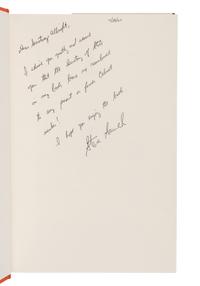 Dear Secretary Albright,
I admire you greatly, and
you that the Secretary of State
in my book bears no resemblance
to any present or former Cabinet
member!
I hope you enjoy the book.